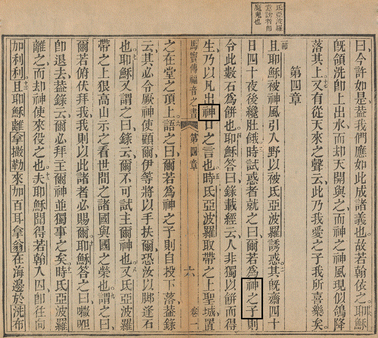 氏亞波羅
魔鬼也
曰今許如是蓋我們應如此成諸義也故若翰依之耶穌
既領洗卽上出水而卽天開與之而神之神風現似鴿降
落其上又有從天來之聲云此乃我愛之子我所喜樂矣
第四章
且耶穌被神風引入野以被氏亞波羅誘惑其旣齋四十
日四十夜後纔肚餓時試惑者就之曰爾若為神之子則
令此數石為餅也耶穌答曰錄載經云人非獨以餅而得
馬竇傳福音之書 第四章 六 卷一
生乃以凡出神口之言也時氏亞波羅取帶之上聖城置
之在堂之頂上謂之曰爾若為神之子則自投下落蓋錄
云其必令厥神使顧爾伊等將以手扶爾恐汝以脚逢石
也耶穌又謂之曰錄云爾不可試主爾神也又氏亞波羅
帶之上狠高山示之看世間之諸國與國之榮也謂之曰
爾若俯伏拜我我則以此諸者必賜爾耶穌答之曰
卽退去蓋錄云爾必拜主爾神並獨事之矣時氏亞波羅
離之而却神使來役之也夫耶穌聞得若翰入囚卽往向
加利利且耶穌離拿撒勒來加百耳拿翁在海邊於洗布